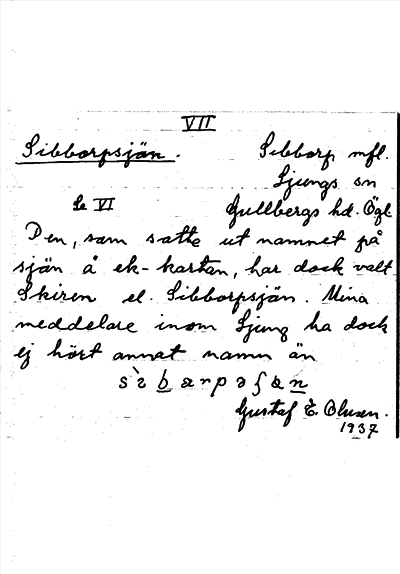 VII
Sibborpsjön. Sibborp mfl.
Ljungs sn
Se VI Gullbergs hd. Ögl.
Den, som satte ut namnet på
sjön å ek-kartan, har dock valt
Skiren el. Sibborpsjön. Mina
meddelare inom Ljung ha dock
ej hört annat namn än
Gustaf E. Olsson.
1937